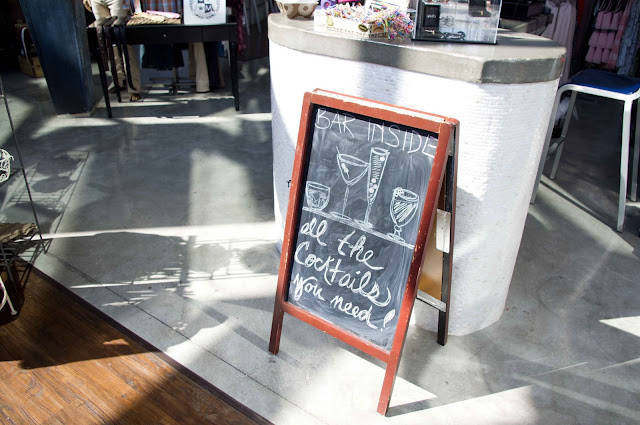 BAR INSIDE
all the
Cocktails
you need!